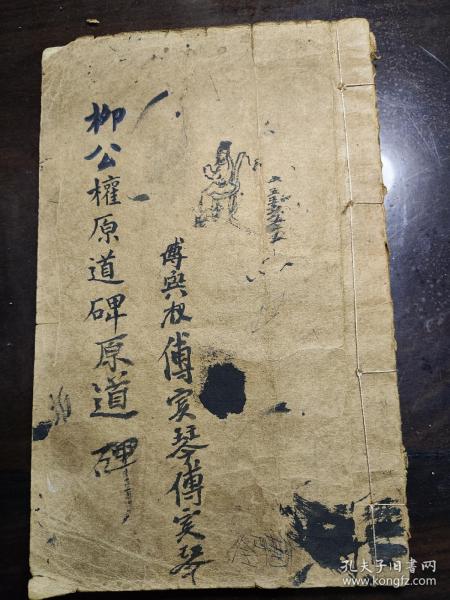 柳公權原道碑原道碑
傅與权傅実琴傅実琴
孔夫子旧书网
www.kongfz.com